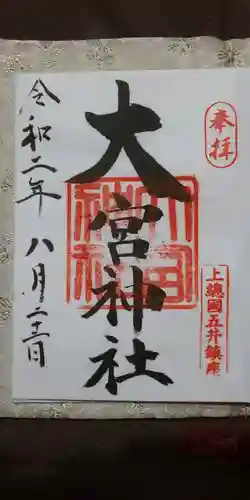 奉拝
上總國五井鎮座
大宮神社
令和二年八月二十二日